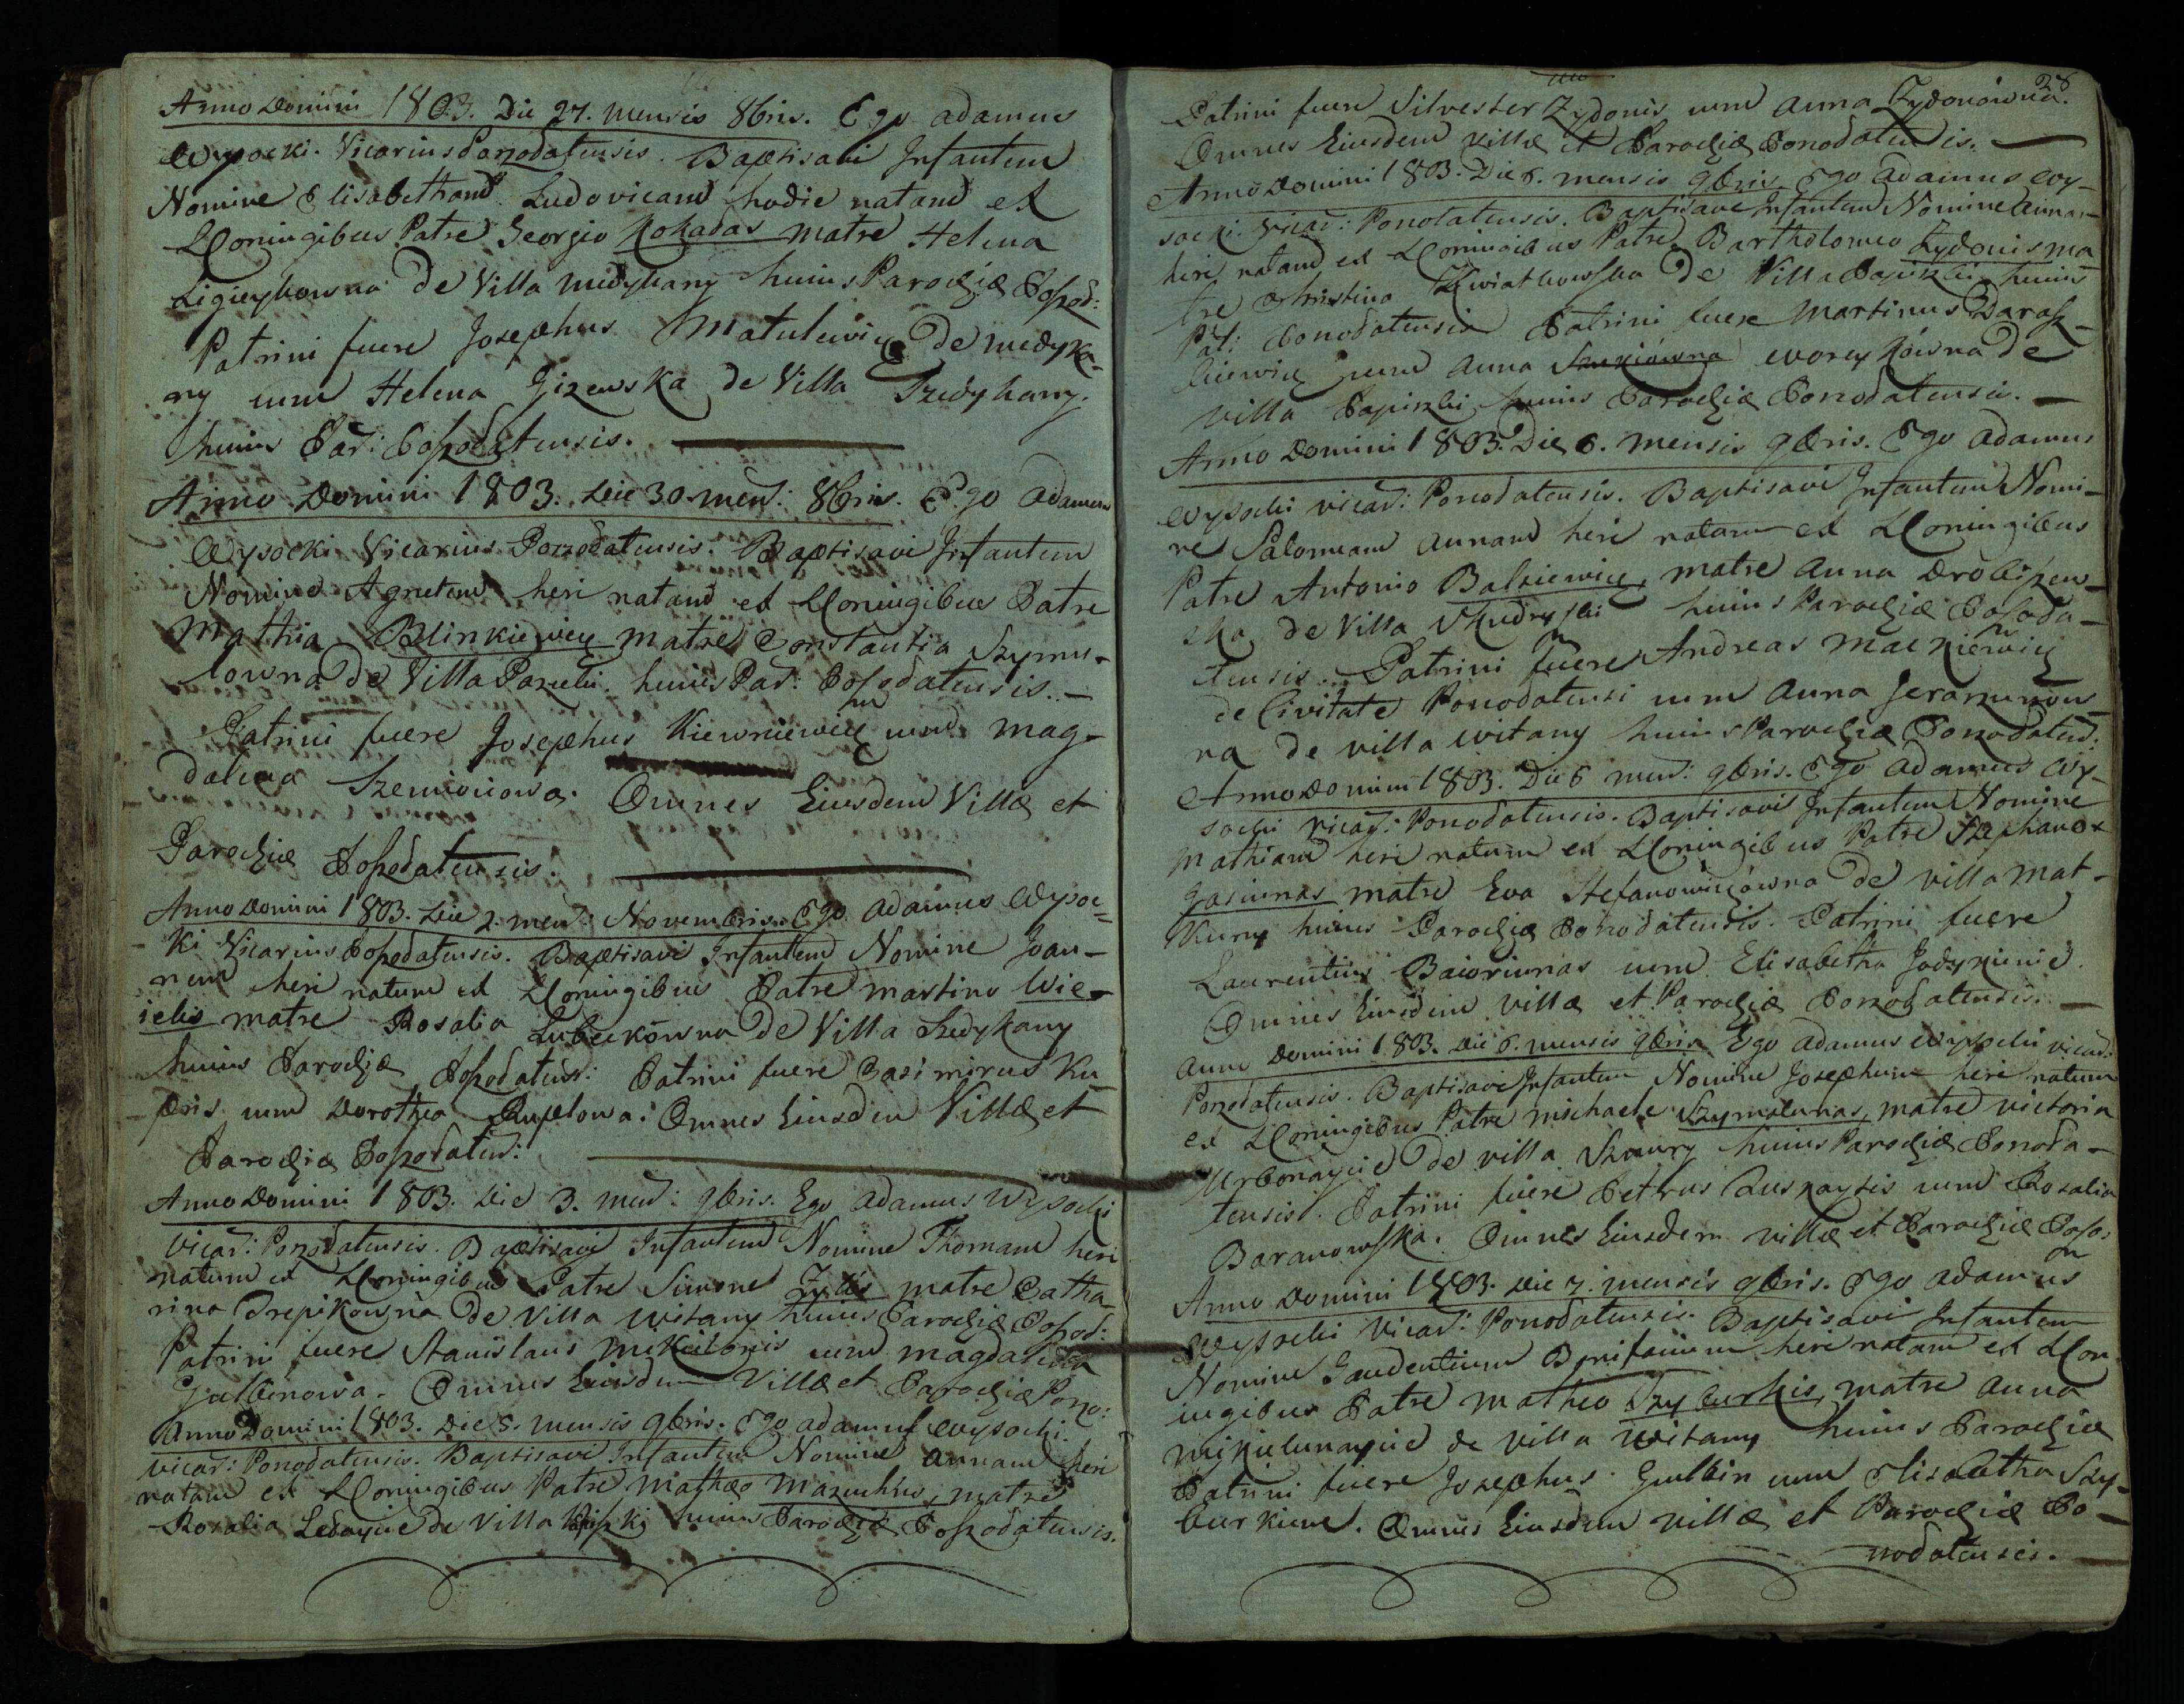 Anno Domini 1803. Die 27. mensis 8bris. Ego adamus
Wysocki. Vicarius Pozodatensis. Baptisavi Infantem
Nomine Elisabetham Ludovicam hodie natam ex
LConiugibus Patre Georgio Kokadas matre Helena
de Villa medykany huius Parochiæ Posod:
Patrini fuere Josephus Matulewicz de medyka-
ny cum Helena Gizewska de Villa Szedykany.
huius Par: Posodatensis.
Anno Domini 1803. Die 30. mens: 8bris. Ego adamus
Wysocki Vicarius Pozodatensis. Baptisavi Infantem
Nomine Agnetem heri natam ex LConiugibus Patre
Mathia Blinkiewicz matre Constantia Szymu-
lowna de Villa huius Par: Posodatensis.
Patrini fuere Josephus Kiewniewicz cum Mag-
dalena Szemiotowa. Omnes Eiusdem Villæ et
Parochiæ Posodatensis.
Anno Domini 1803. Die 2. mens: Novembris. Ego adamus Wysoc-
ki Vicarius Posodatensis. Baptisavi Infantem Nomine Joan-
nem heri natum ex LConiugibus Patre martino Wic-
ielis matre Rosalia Lubeckówna de Villa Szedykany
huius Parochiæ Posodatens: Patrini fuere Casimirus Ku-
peris cum Dorothea Omnes Eiusdem Villæ et
Parochiæ Posodatens:
Anno Domini 1803. Die 3. mens: 9bris. Ego adamus Wysocki
Vicar: Pozodatensis. Baptisavi Infantem Nomine Thomam heri
natum ex LConiugibus Patre Simone Zylis matre Catha-
rina Trepikowna de Villa Witany huius Parochiæ Posod:
Patrini fuere Stanislaus Mikulonis cum Magdalena
Gulbinowa. Omnes Eiusdem Villæ et Parochiæ Pono:
Anno Domini 1803. Die 5. mensis 9bris. Ego adamus Wysocki.
vicar: Ponodatensis. Baptisavi Infantem Nomine Annam heri
natam ex LConiugibus Patre Mathæo Mazuchnis, matre
Rosalia de Villa huius Parochiæ Posodatensis.
28
Patrini fuere Silvester Zydonis cum Anna Zydonówna.
Omnes Eiusdem Villæ et Parochiæ Ponodatensis.
Anno Domini 1803. Die 6. mensis 9bris Ego Adamus Wy-
socki. Vicar: Ponodatensis. Baptisavi Infantem Nomine Annam
heri natam ex LConiugibus Patre Bartholomeo Zydonis ma-
tre Christina Kwiatkowska de Villa Papiszki huius
Par: Ponodatensis Patrini fuere Martinus Barasz-
kiewicz cum Anna Woreykówna de
Villa Papiszki huius Parochiæ Ponodatensis.
Anno Domini 1803. Die 6. mensis 9bris. Ego Adamus
Wysocki vicar: Ponodatensis. Baptisavi Infantem Nomi-
ne Salomeam Annam heri natam ex LConiugibus
Patre Antonio Balsiewicz, matre Anna Drobiszew-
ska de Villa Skudryski huius Parochiæ Posoda-
tensis. Patrini fuere Andreas Mackiewicz
de Civitate Ponodatensi cum Anna Jeraminow-
na de villa Witany huius Parochiæ Ponodatens:
Anno Domini 1803. Die 6 mens: 9bris. Ego Adamus Wy-
socki vicar: Ponodatensis. Baptisavi Infantem Nomine
Mathiam heri natum ex LConiugibus Patre Stephano
Gasiunas matre Eva Stefanowiczówna de villa Mat-
kuny huius Parochiæ Ponodatensis. Patrini fuere
Laurentius Baiorinas cum Elisabetha Jodyniene.
Omnes Eiusdem Villæ et Parochiæ Ponodatensis.
Anno Domini 1803. Die 6. mensis 9bris Ego Adamus Wysocki vicar:
Ponodatensis. Baptisavi Infantem Nomine Josephum heri natum
ex LConiugibus Patre Michaele Szymalunas, matre Victoria
Urbonaycie de villa Szaury huius Parochiæ Ponoda-
tensis. Patrini fuere Petrus Auszaytis cum Rosalia
Baranowska. Omnes Eiusdem villæ et Parochiæ Poso:
Anno Domini 1803. Die 7. mensis 9bris. Ego Adamus
Wysocki Vicar: Ponodatensis. Baptisavi Infantem
Nomine Gaudentium Bonifacium heri natum ex LCon-
iugibus Patre Matheo Szyburkis, matre Anna
Mikulunaycie de villa Witany huius Parochiæ
Patrini fuere Josephus Gulbin cum Elisabetha Szy-
burkiene. Omnes Eiusdem villæ et Parochiæ Po-
nodatensis.